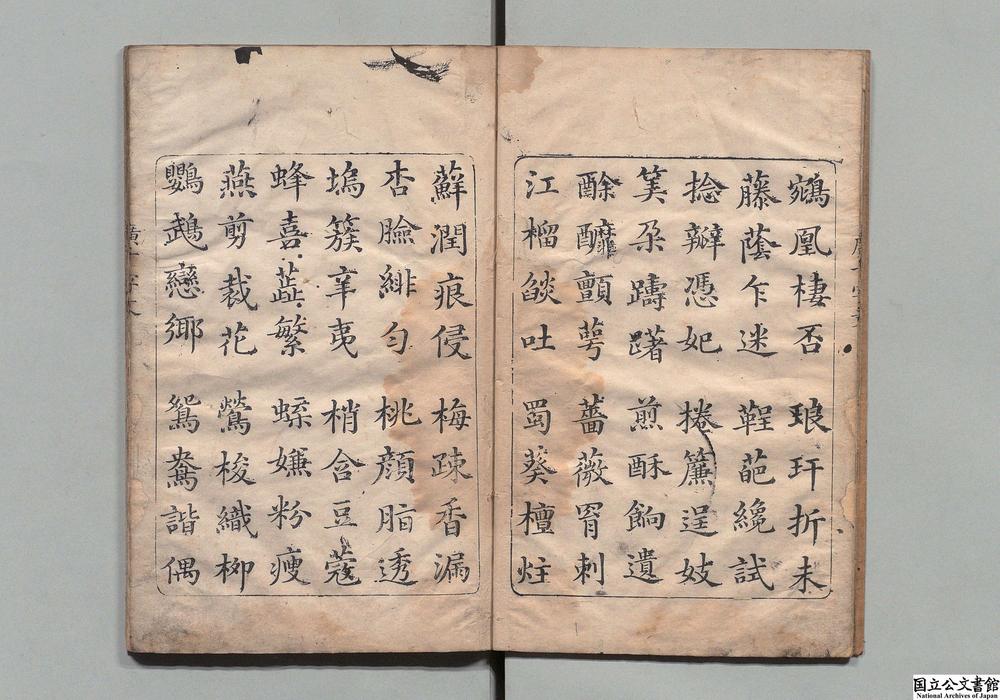 鵷凰棲否 琅玕折未
藤蔭乍迷 鞓葩纔試
捻瓣憑妃 捲簾逞妓
筭朶躊躇 煎酥餉遺
酴醿顫萼 薔薇罥刺
江榴燄吐 蜀葵檀炷
蘚潤痕侵 梅疎香漏
杏臉緋勻 桃顔脂透
塢簇辛夷 梢含豆蔻
蜂喜蕋繁 蝶嫌粉瘦
燕剪裁花 鶯梭織柳
鸚鵡戀鄉 鴛鴦諧偶
国立公文書館
National Archives of Japan